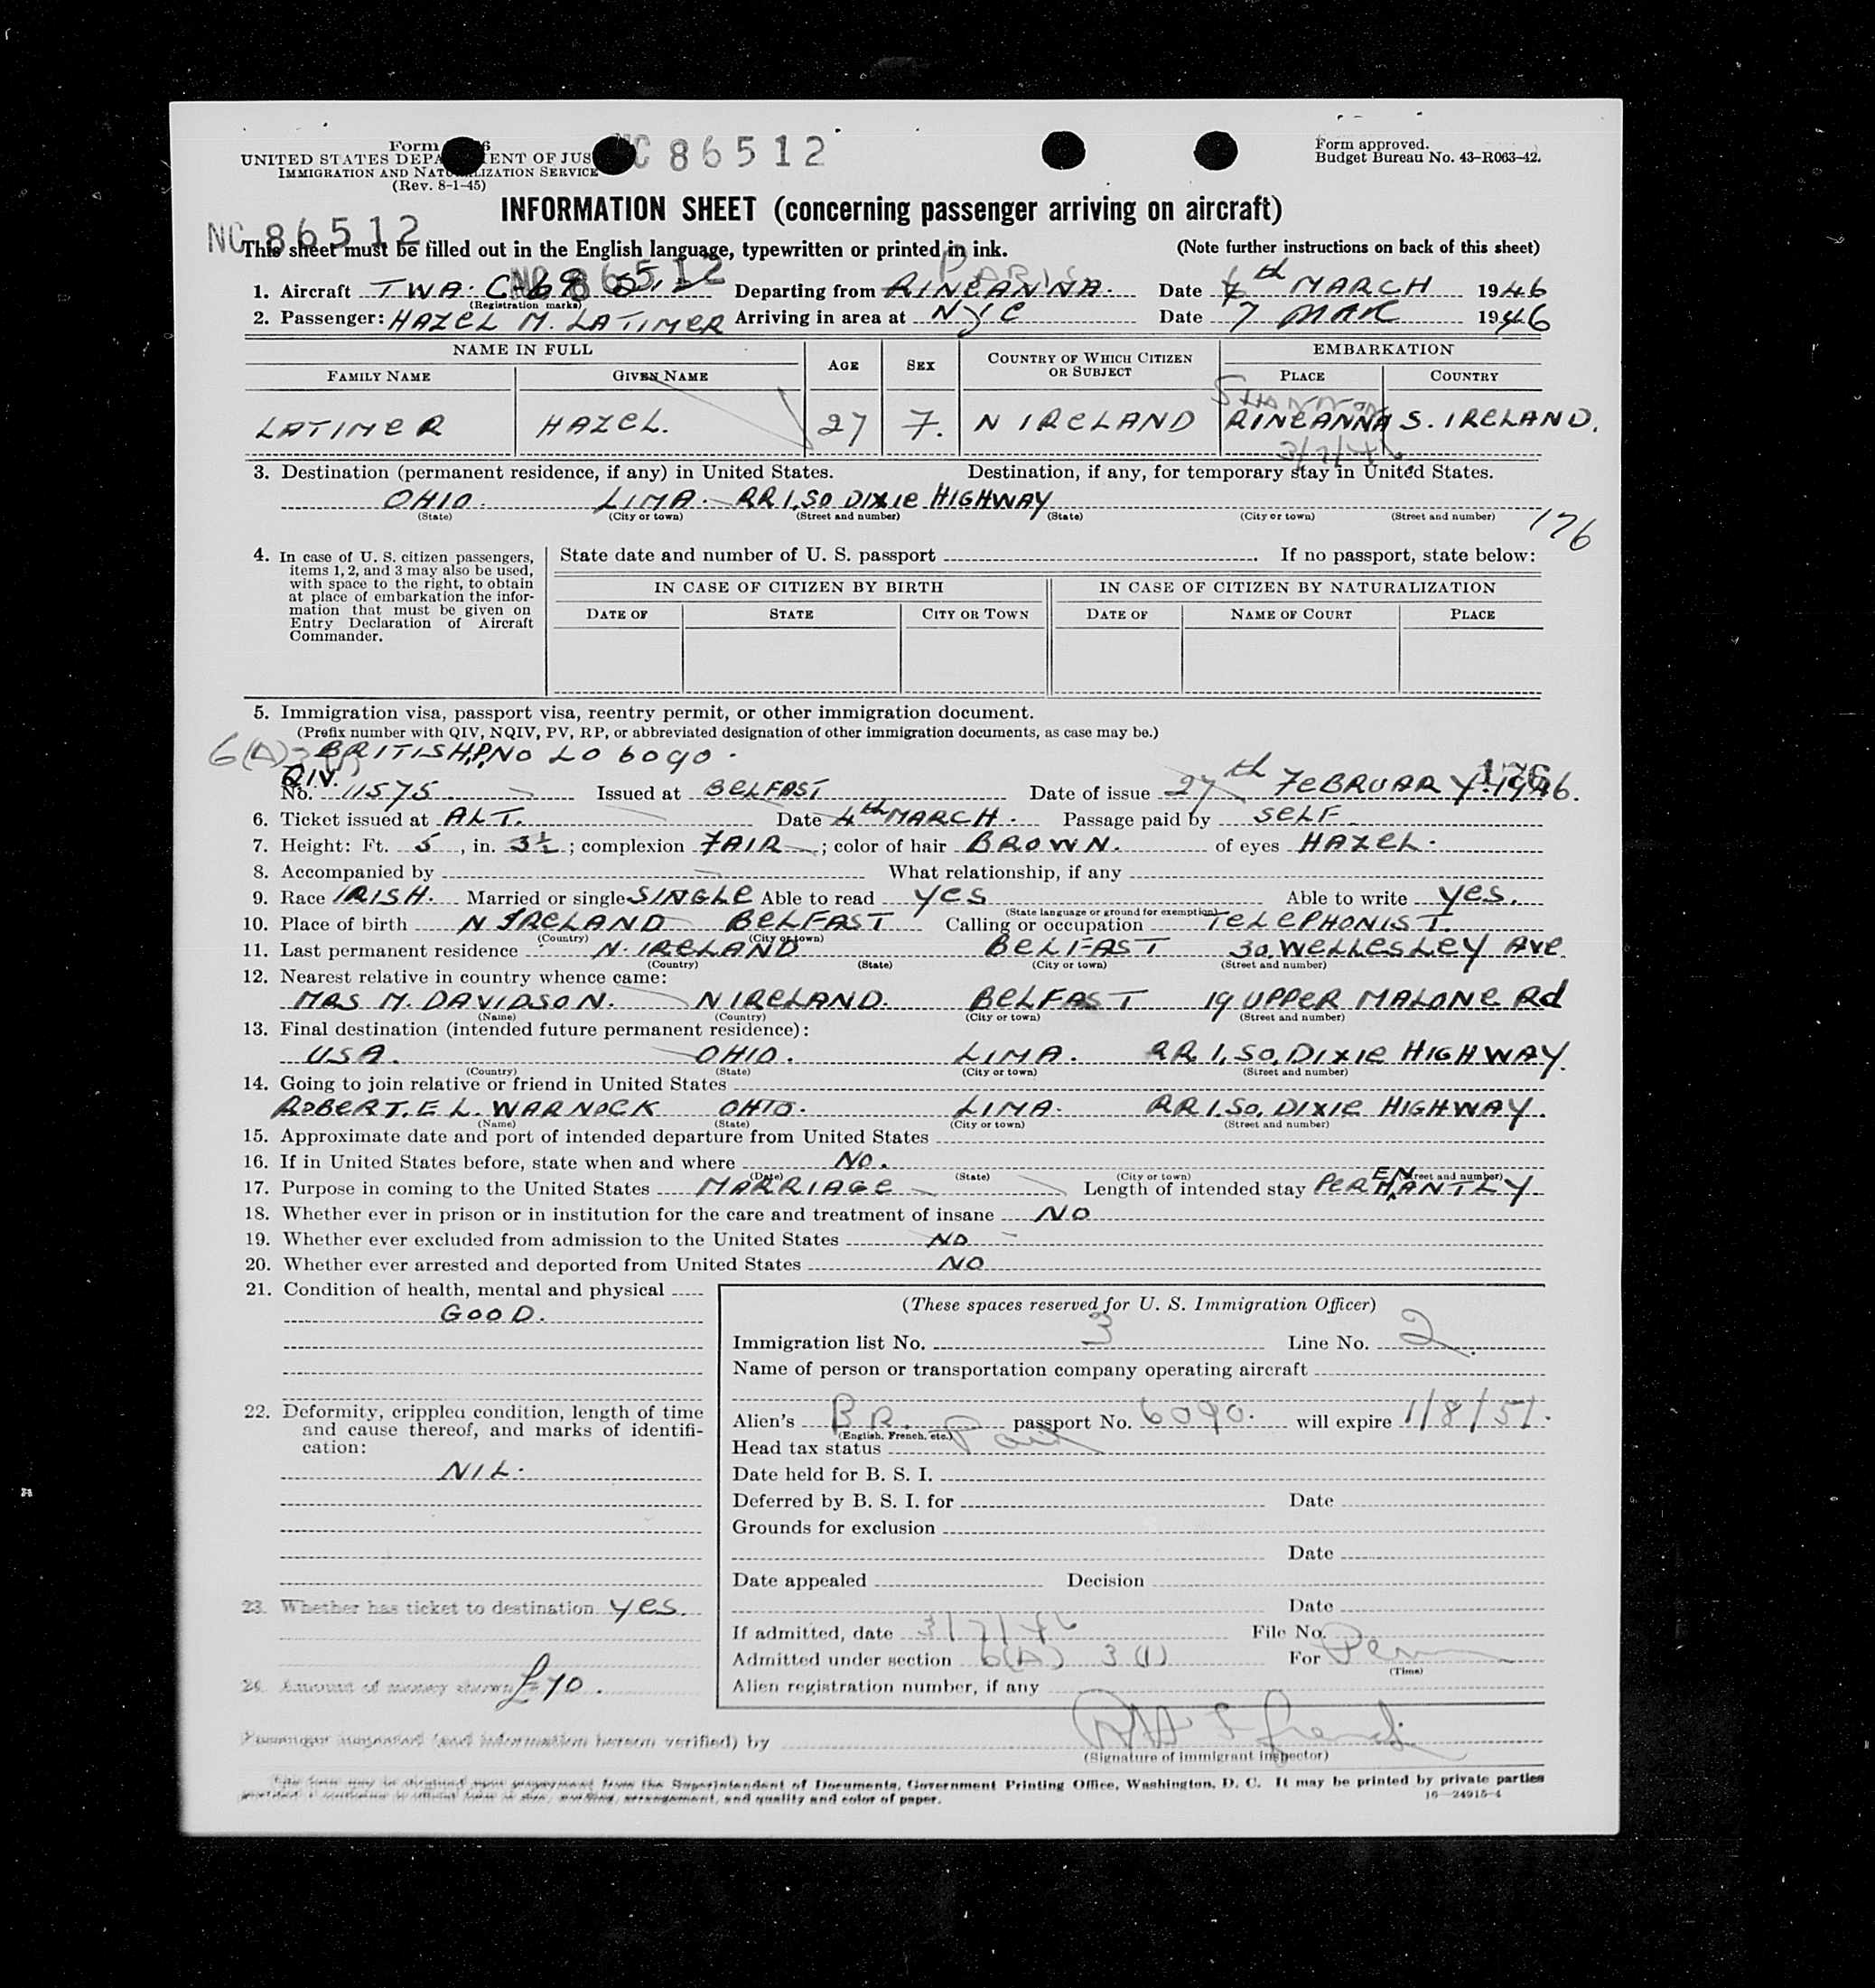 Form 6
NC 86512
Form approved.
UNITED STATES DEPA ENT OF JUS
Budget Bureau No. 43-R063-42.
IMMIGRATION AND NAT LIZATION SERVICE
(Rev. 8-1-45)
INFORMATION SHEET (concerning passenger arriving on aircraft)
NC 86512
This sheet must be filled out in the English language, typewritten or printed in ink. (Note further instructions on back of this sheet)
NC 86512
PARIS
1. Aircraft TWA. C-69 Departing from RINEANNA. Date th MARCH 1946
(Registration marks)
2. Passenger: HAZEL M. LATIMER Arriving in area at NYC Date 7 MAR 1946
NAME IN FULL AGE SEX COUNTRY OF WHICH CITIZEN OR SUBJECT EMBARKATION
FAMILY NAME GIVEN NAME PLACE COUNTRY
SHANNON
LATIMER HAZEL. 27 F. N IRELAND RINEANNA S. IRELAND.
3/7/46
3. Destination (permanent residence, if any) in United States. Destination, if any, for temporary stay in United States.
OHIO. LIMA. RR1, SO DIXIE HIGHWAY
(State) (City or town) (Street and number) (State) (City or town) (Street and number)
176
4. In case of U. S. citizen passengers, items 1, 2, and 3 may also be used, with space to the right, to obtain at place of embarkation the information that must be given on Entry Declaration of Aircraft Commander.
State date and number of U. S. passport If no passport, state below:
IN CASE OF CITIZEN BY BIRTH IN CASE OF CITIZEN BY NATURALIZATION
DATE OF STATE CITY OR TOWN DATE OF NAME OF COURT PLACE
5. Immigration visa, passport visa, reentry permit, or other immigration document.
(Prefix number with QIV, NQIV, PV, RP, or abbreviated designation of other immigration documents, as case may be.)
6(A)3 BRITISH P.P. NO LO 6090.
176
QIV.
No. 11575 Issued at BELFAST Date of issue 27th FEBRUARY 1946.
6. Ticket issued at ALT. Date 4th MARCH. Passage paid by SELF
7. Height: Ft. 5, in. 3½; complexion FAIR; color of hair BROWN. of eyes HAZEL.
8. Accompanied by What relationship, if any
9. Race IRISH. Married or single SINGLE Able to read YES Able to write YES.
(State language or ground for exemption)
10. Place of birth N IRELAND BELFAST Calling or occupation TELEPHONIST.
(Country) (City or town)
11. Last permanent residence N. IRELAND BELFAST 30. WELLESLEY AVE
(Country) (State) (City or town) (Street and number)
12. Nearest relative in country whence came:
MRS M. DAVIDSON. N IRELAND. BELFAST 19 UPPER MALONE Rd
(Name) (Country) (City or town) (Street and number)
13. Final destination (intended future permanent residence):
USA. OHIO. LIMA. RR 1, SO, DIXIE HIGHWAY.
(Country) (State) (City or town) (Street and number)
14. Going to join relative or friend in United States
ROBERT. E L. WARNOCK OHIO. LIMA. RR 1. SO, DIXIE HIGHWAY.
(Name) (State) (City or town) (Street and number)
15. Approximate date and port of intended departure from United States
16. If in United States before, state when and where NO.
(Date) (State) (City or town) (Street and number)
17. Purpose in coming to the United States MARRIAGE Length of intended stay PERMENANTLY
18. Whether ever in prison or in institution for the care and treatment of insane NO
19. Whether ever excluded from admission to the United States NO
20. Whether ever arrested and deported from United States NO
21. Condition of health, mental and physical
GOOD.
22. Deformity, crippled condition, length of time and cause thereof, and marks of identification:
NIL.
23. Whether has ticket to destination YES.
24. Amount of money shown £70.
(These spaces reserved for U. S. Immigration Officer)
Immigration list No. 3 Line No. 2
Name of person or transportation company operating aircraft
Alien's BR. passport No. 6090. will expire 1/8/51.
(English, French, etc.)
Head tax status Paid
Date held for B. S. I.
Deferred by B. S. I. for Date
Grounds for exclusion
Date
Date appealed Decision
Date
If admitted, date 3/7/46 File No.
Admitted under section 6(A) 3 (1) For Perm
(Time)
Alien registration number, if any
Passenger inspected (and information hereon verified) by
(Signature of immigrant inspector)
This form may be obtained upon prepayment from the Superintendent of Documents, Government Printing Office, Washington, D. C. It may be printed by private parties
provided it conforms to official form in size, wording, arrangement, and quality and color of paper.
16—24915-4